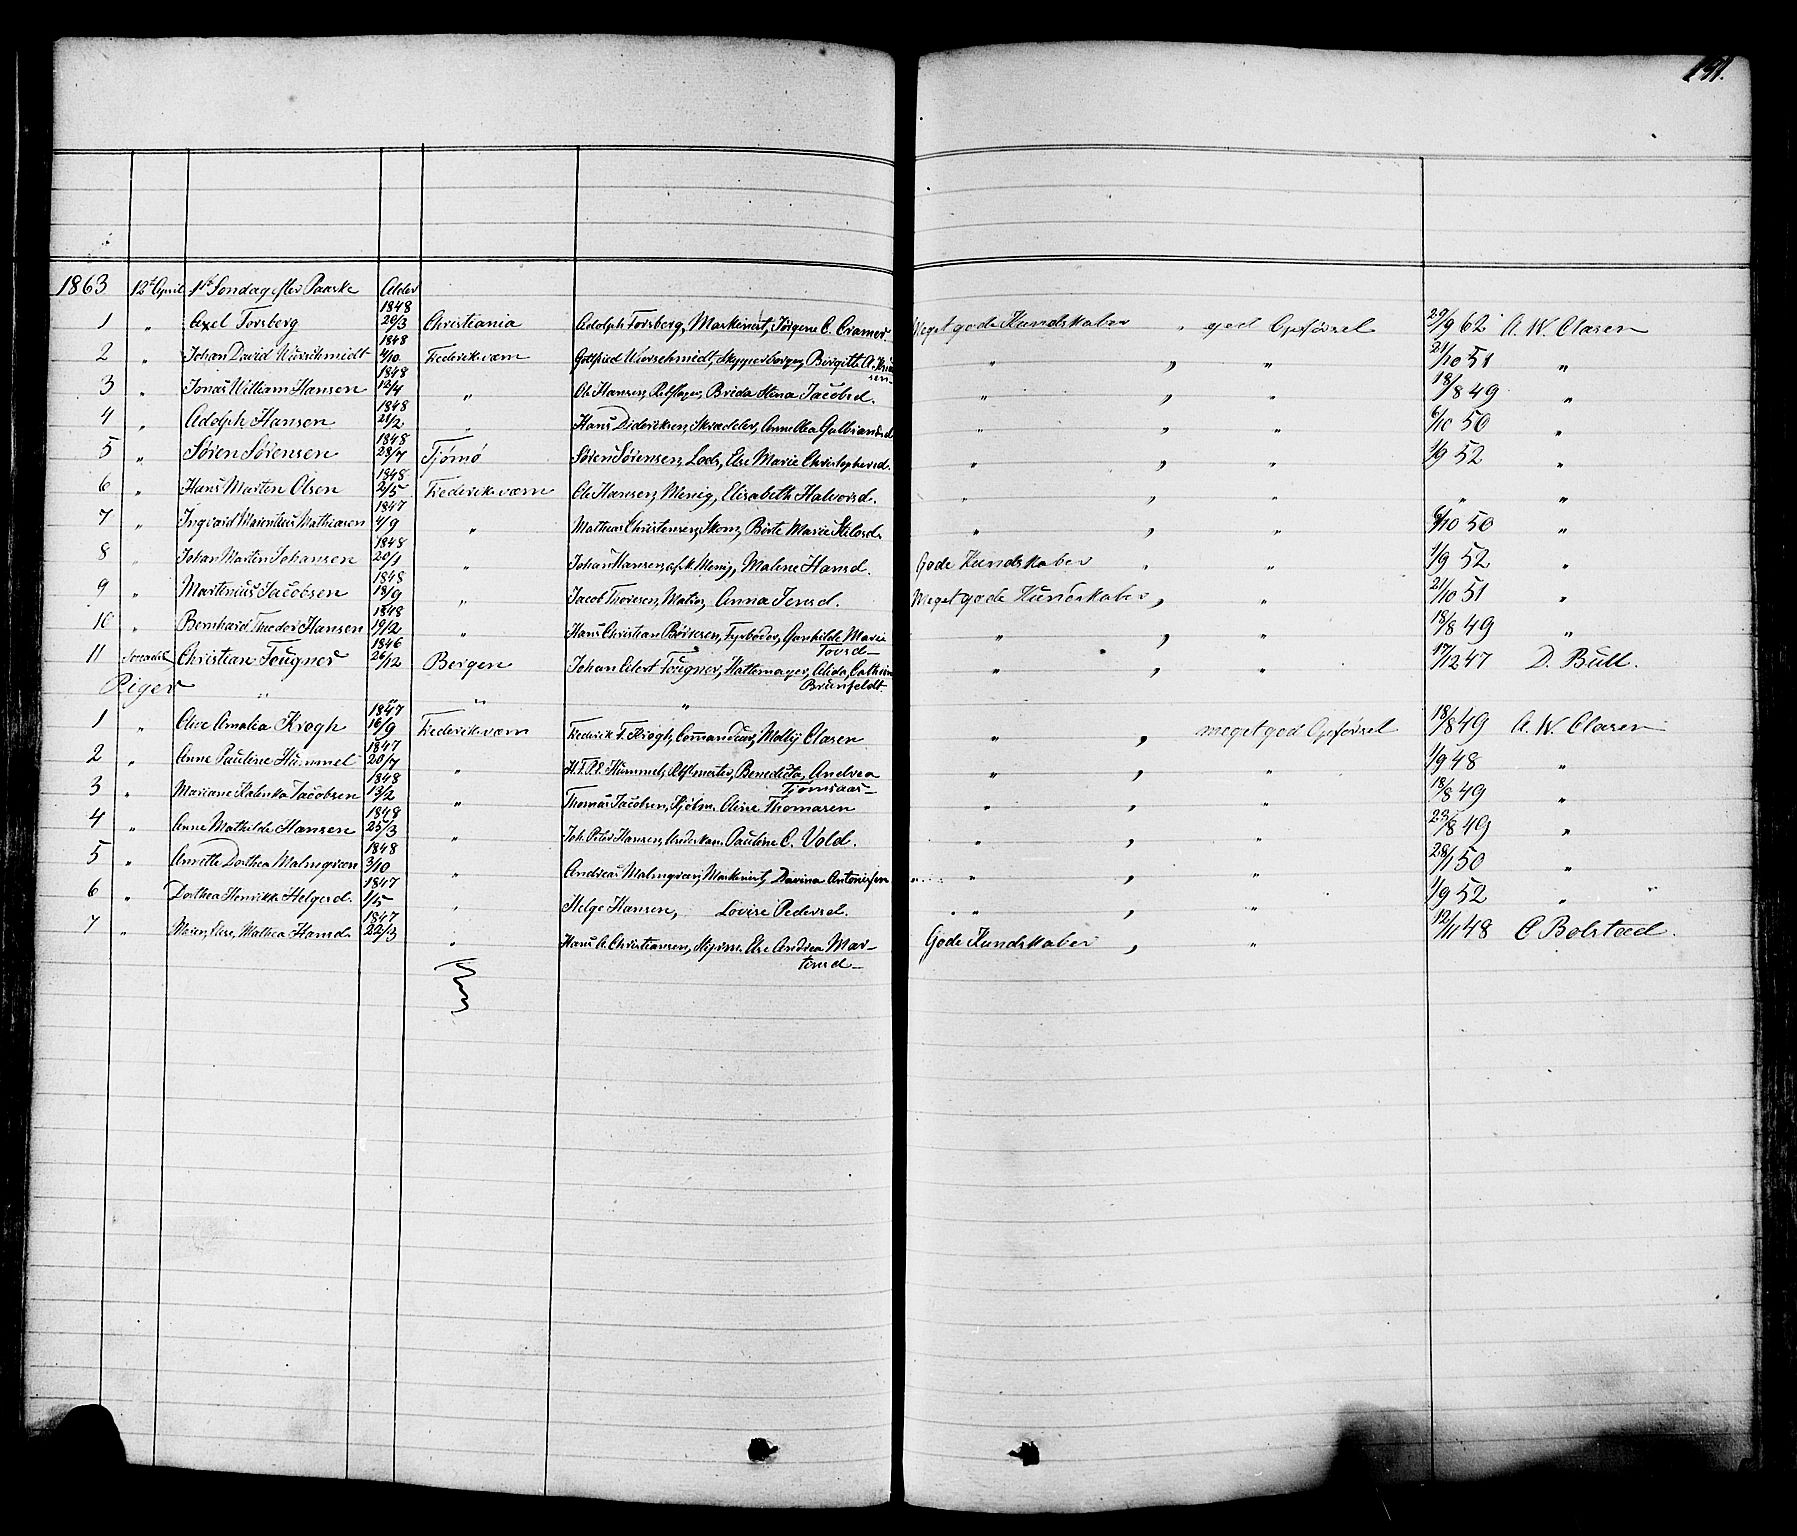 191.
1863 12te April 1ste Søndag efter Paaske Alder
1 " Axel Forsberg 1848 20/3 Christiania Adolph Forsberg, Maskinist, Jørgene C. Cramer. Meget gode Kundskaber " god Opførsel 29/9 62 A. W. Clasen
2 " Johan David Würschmidt 1848 4/10 Frederiksværn Gottfried Würschmidt, Skipperborger, Birgitte A. " , " 21/10 51 "
3 " Jonas William Hansen 1848 12/4 " Ole Hansen, Rebslager, Brida Stina Jacobsd. " , " 18/8 49 "
4 " Adolph Hansen 1848 21/2 " Hans Dideriksen, Skrædder, Anne Olea Gulbrandsd " , " 6/10 50 "
5 " Søren Sørensen 1848 28/7 Tjømø Søren Sørensen, Lods, Else Marie Christophersd. " , " 1/9 52 "
6 " Hans Marten Olsen 1848 2/5 Frederiksværn Ole Hansen, Menig, Elisabeth Halvorsd. " , " " "
7 " Ingvard Marentius Mathiasen 1847 4/9 " Mathias Christensen, Skom, Birte Marie Nilsd. " , " 6/10 50 "
8 " Johan Martin Johansen 1848 20/1 " Johan Hansen, afsk. Menig, Maline Hansd. Gode Kundskaber , " 1/9 52 "
9 " Martinius Jacobsen 1848 18/9 " Jacob Thoresen, Matros, Anna Jensd. Meget gode Kundskaber , " 21/10 51 "
10 " Bernhard Theodor Hansen 1848 19/2 " Hans Christian Børresen, Fyrbøder, Gunhilde Marie " , " 18/8 49 "
Torsd
11 Christian Fougner 1846 26/12 Bergen Johan Eilert Fougner, Hattemager, Alida Cathrine " , " 17/12 47 D. Bull.
Piger " " " Brunfeldt
1 " Olive Amalia Krogh 1847 16/9 Frederiksværn Frederik F. Krogh, Commandeur, Molly Clasen " , meget god Opførsel 18/8 49 A. W. Clasen
2 " Anne Pauline Hummel 1847 20/7 " H. F. P. E. Hummel, Rebslmester, Benedicta, Andrea " , " 1/9 48 "
3 " Mariane Kalenka Jacobsen 1848 13/2 " Thomas Jacobsen, Kjølm. Olise Thomasen " , " 18/8 49 "
4 " Anne Mathilde Hansen 1848 25/3 " Joh. Peter Hansen, Underkan. Pauline C. Vold. " , " 23/8 49 "
5 " Annette Dorthea Malmgreen 1848 3/10 " Andreas Malmgreen, Maskinist, Davina Antonissen " " , " 28/1 50 "
6 " Dorthea Henrikke Helgesd. 1847 1/5 " Helge Hansen, Lovise Pedersd. " , " 1/9 52 "
7 " Maren, Else, Mathea Hansd. 1847 22/3 " Hans A. Christiansen, Styrm. Else Andrea Mar- Gode Kundskaber , " 12/11 48 C Bolstad.
tensd